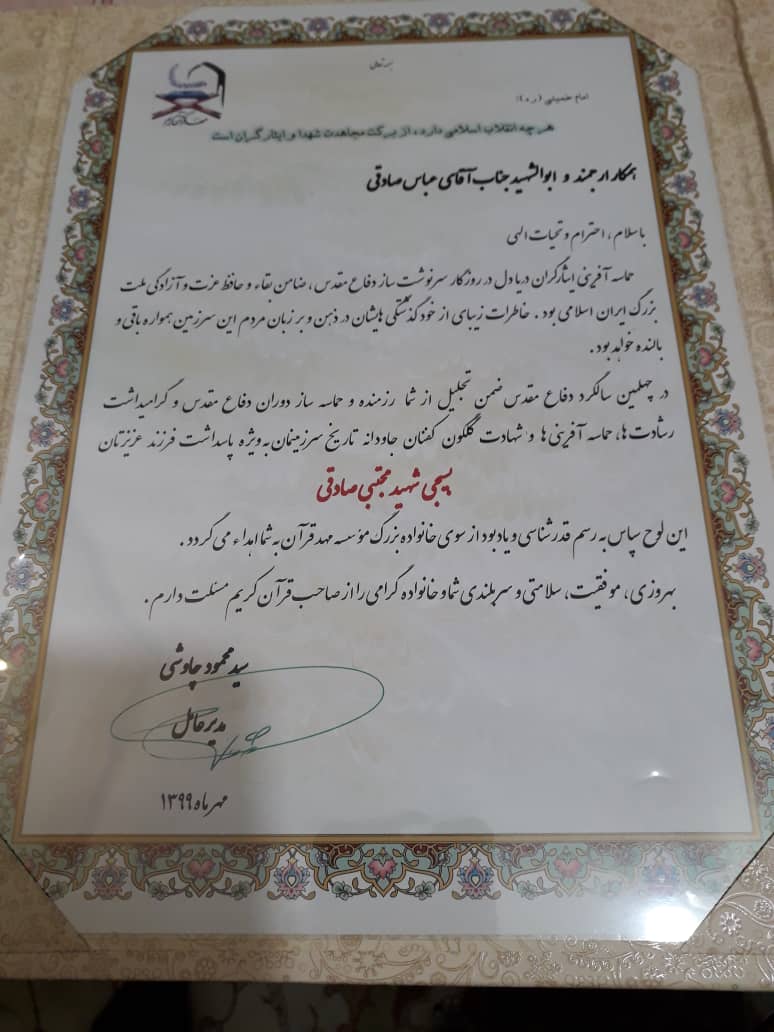 بسمه تعالی
امام خمینی (ره):
هر چه انقلاب اسلامی دارد، از برکت مجاهدت شهدا و ایثارگران است
همکار ارجمند و ابوالشهید جناب آقای عباس صادقی
با سلام، احترام و تحیات الهی
حماسه آفرینی ایثارگران دریادل در روزگار سرنوشت ساز دفاع مقدس، ضامن بقاء و حافظ عزت و آزادگی ملت
بزرگ ایران اسلامی بود. خاطرات زیبای از خود گذشتگی هایشان در ذهن و بر زبان مردم این سرزمین همواره باقی و
بالنده خواهد بود.
در چهلمین سالگرد دفاع مقدس ضمن تجلیل از شما رزمنده و حماسه ساز دوران دفاع مقدس و گرامیداشت
رشادت ها، حماسه آفرینی ها و شهادت گلگون کفنان جاودانه تاریخ سرزمینمان به ویژه پاسداشت فرزند عزیزتان
بسیجی شهید مجتبی صادقی
این لوح سپاس به رسم قدرشناسی و یادبود از سوی خانواده بزرگ مؤسسه مهد قرآن به شما اهداء می گردد.
بهروزی، موفقیت، سلامتی و سربلندی شما و خانواده گرامی را از صاحب قرآن کریم مسئلت دارم.
سید محمود چاوشی
مدیرعامل
مهر ماه ۱۳۹۹